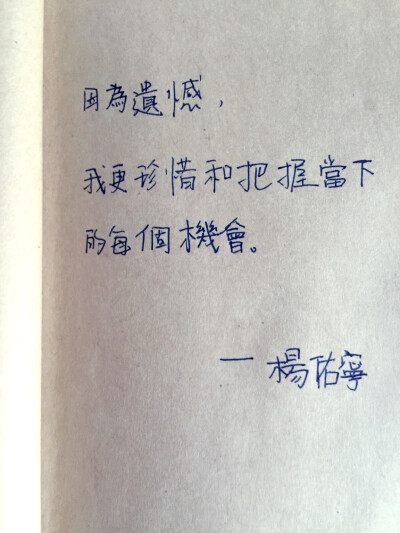 因為遺憾，
我更珍惜和把握當下
的每個機會。
— 楊祐寧